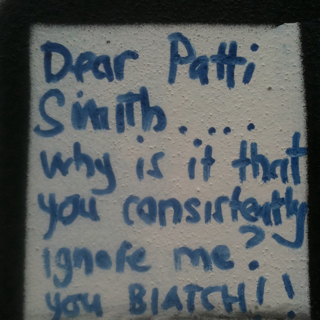 Dear Patti
Smith.....
why is it that
you consistently
ignore me?
you BIATCH!!